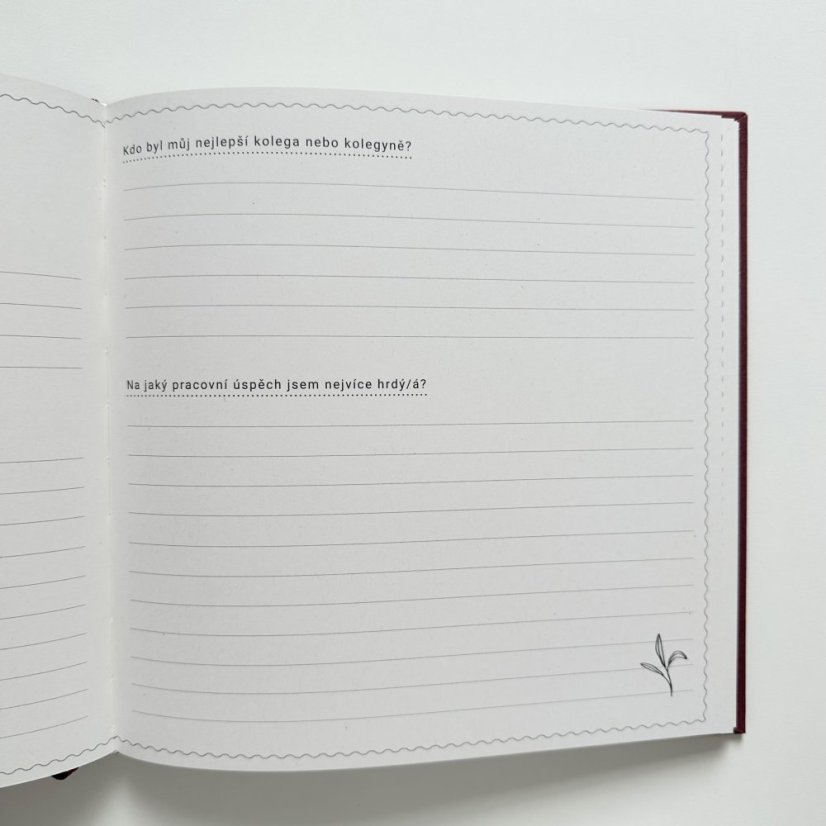 Kdo byl můj nejlepší kolega nebo kolegyně?
Na jaký pracovní úspěch jsem nejvíce hrdý/á?